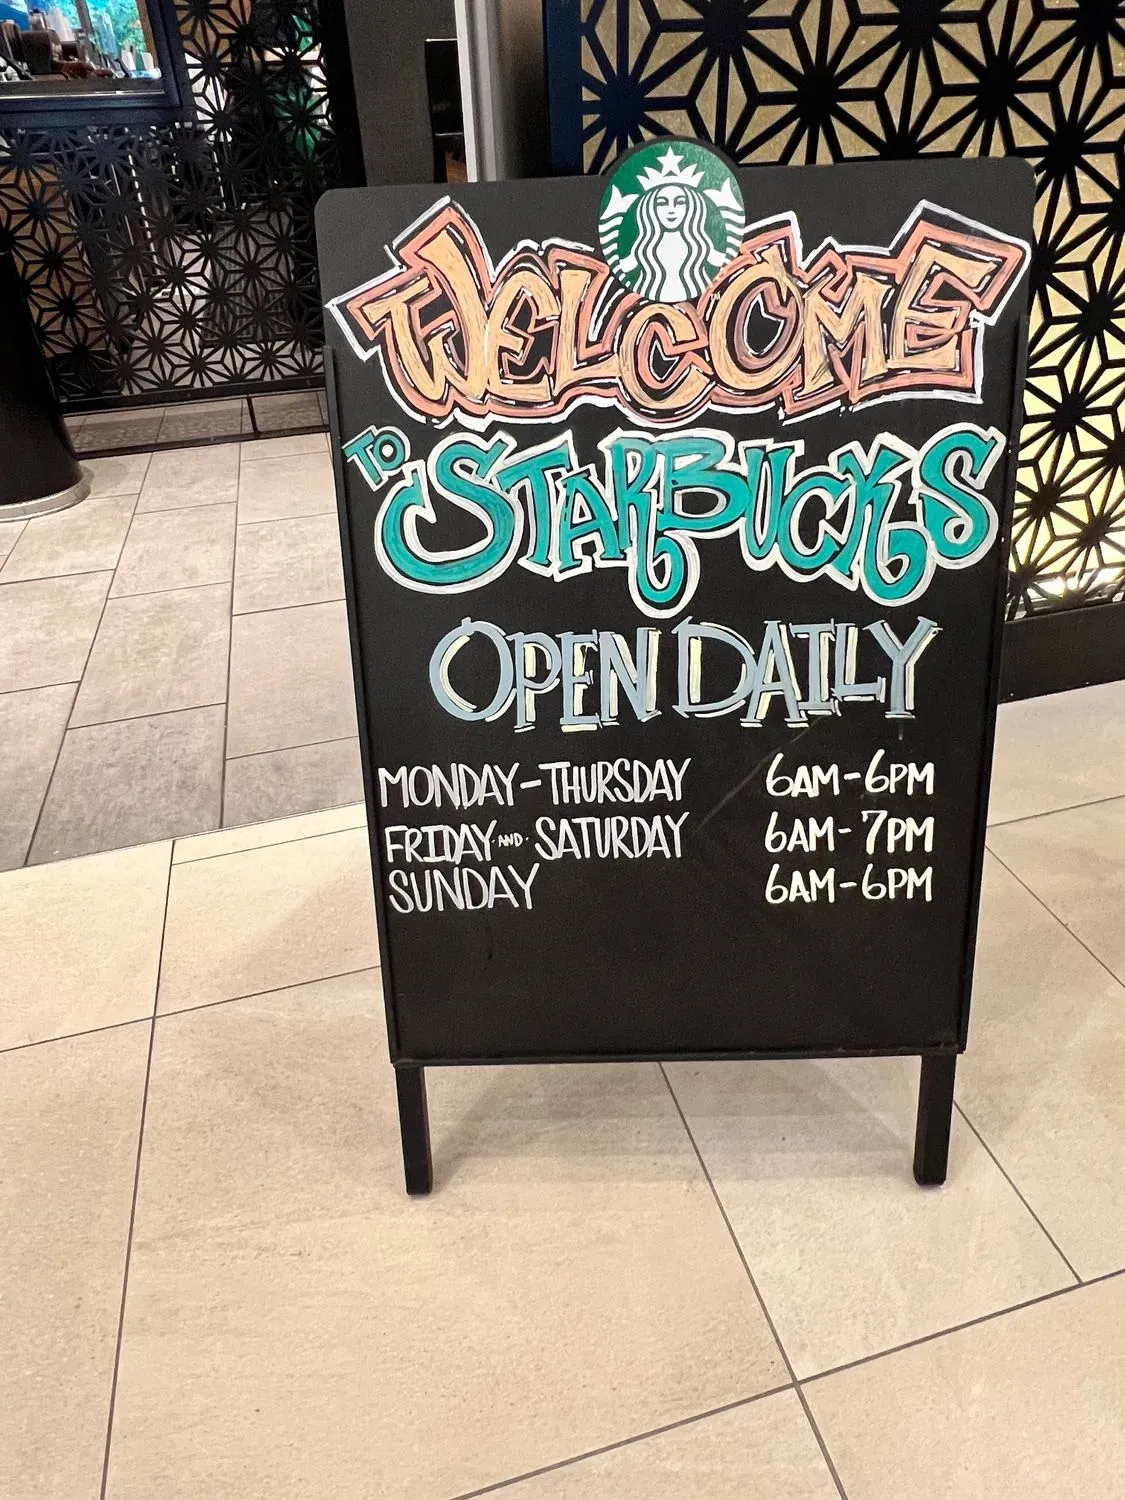 WELCOME
TO STARBUCKS
OPEN DAILY
MONDAY-THURSDAY 6AM-6PM
FRIDAY AND SATURDAY 6AM-7PM
SUNDAY 6AM-6PM